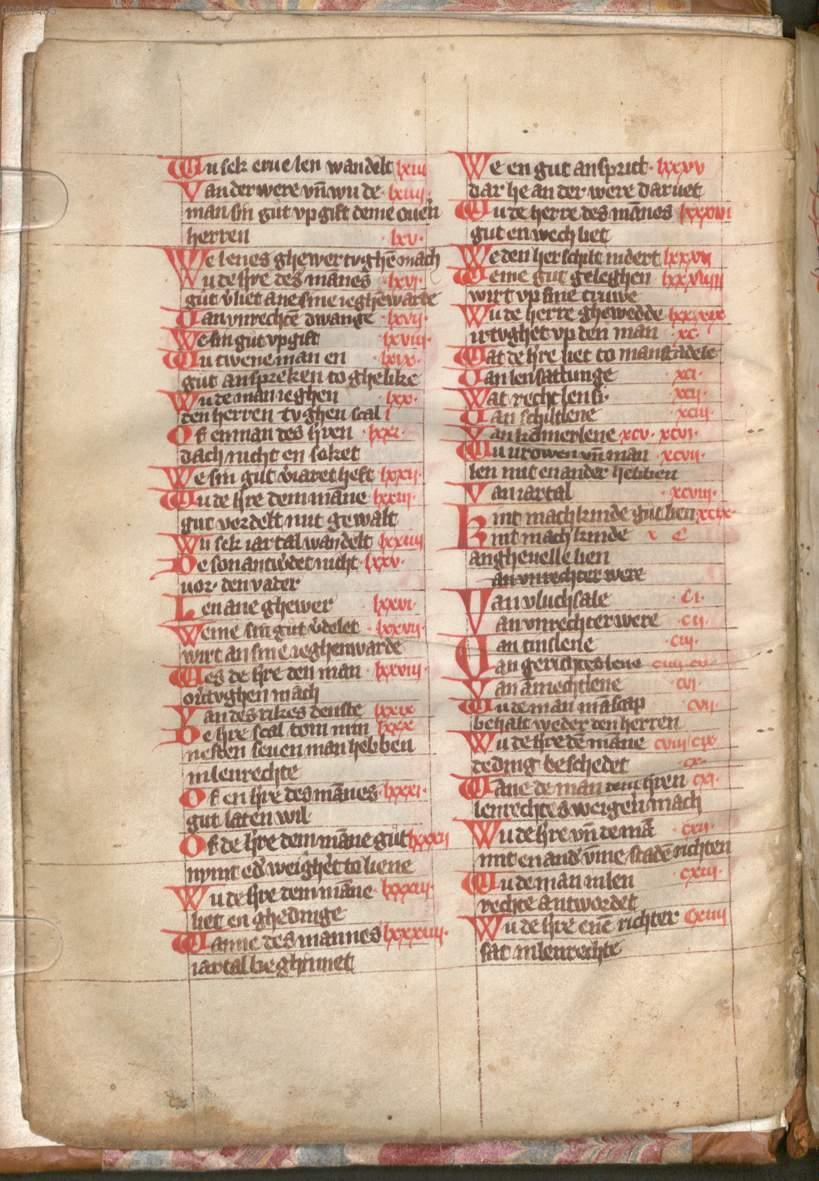 Wu sek erue len wandelt lxiii
Van der were vn̄ wu de lxiiii
man sin gut vp gift deme ouerē
herren lxv
We lenes ghewer tvghē mach
Wu de hr̄e des mānes lxvi
gut v̄liet ane sine ieghewarde
Van vnrechtē dwange lxvii
We sin gut vp gift lxviii
Wu twene man en lxix
gut anspreken to ghelike
Wu de man ieghen lxx
den herren tvghen scal
Of en man des hr̄en lxxi
dach nicht en soket
We sin gut v̄iaret heft lxxii
Wu de hr̄e dem māne lxxiii
gut verdelt mit gewalt
Wu sek iartal wandelt lxxiiii
De son antw̄det nicht lxxv
uor den vader
Len ane ghewer lxxvi
Weme sin gut v̄delet lxxvii
wirt an sine ieghenwarde
Wes de hr̄e den man lxxviii
ortvghen mach
Van des rikes denste lxxix
De hr̄e scal tom min lxxx
nesten seuen man hebben
in lenrechte
Of en hr̄e des mānes lxxxi
gut laten wil
Of de hr̄e dem māne gut lxxxii
nymt ed̄ weighēt to liene
Wu de hr̄e dem māne lxxxiii
liet en ghedinge
Wanne des mannes lxxxiiii
iartal beghinnet
We en gut ansprict lxxxv
dar he an der were daruet
Wu de herre des mānes lxxxvi
gut enwech liet
We den herschilt nidert lxxxvii
Weme gut geleghen lxxxviii
wirt vp sine truwe
Wu de herre ghewedde lxxxix
irtvghet vp den man xc
Wat de hr̄e liet to manstadele
Van lensattunge xci
Wat recht len si xcii
Van schiltlene xciii
Van kamerlene xcv xcvi
Wu vrowen vn̄ man xcvii
len mit enander hebben
Van iartal xcviii
Kint mach kinde gut lien xcix
Kint mach kinde c
angheuelle lien
an vnrechter were
Van vluchsale ci
Van vnrechter were cii
Van tinslene ciii
Van gerichteslene ciiii cv
Van amechtlene cvi
Wu de man mascap cvii
behalt weder den herren
Wu de hr̄e dē māne cviii cix
teding beschedet cx
Wane de man dem hr̄en cxi
lenrechtes weigeh mach
Wu de hr̄e vn̄ de mā cxii
mit enand̄ vme stadē richten
Wu de man in len cxiii
rechte antwordet
Wu de hr̄e enē richter cxiiii
sat in lenrechte